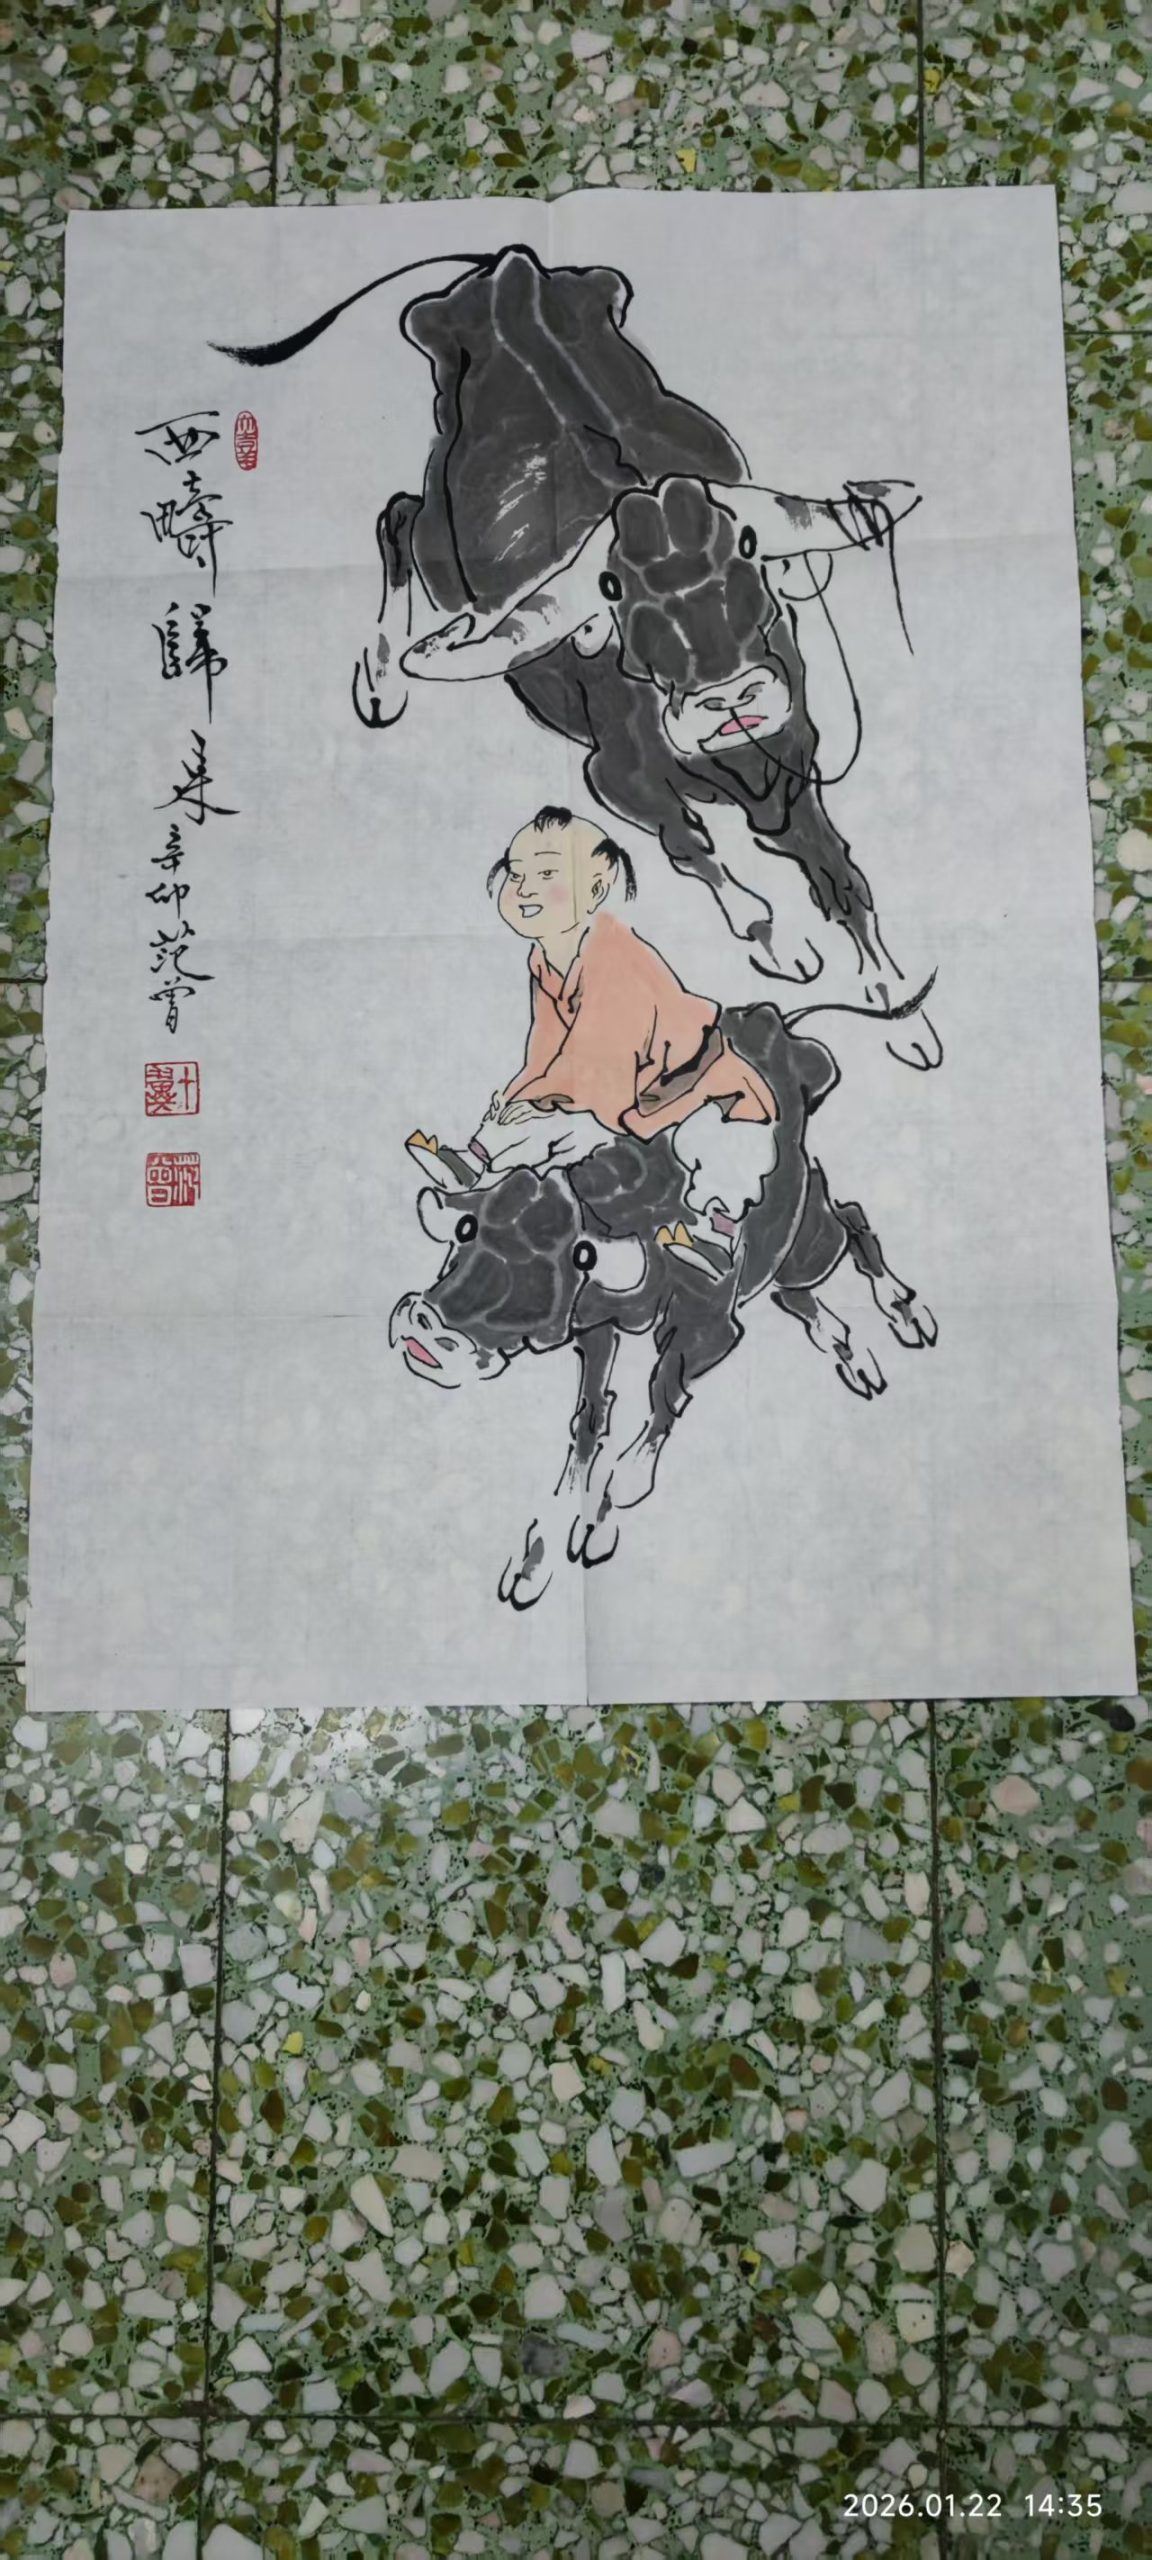 西疇歸來
辛卯范曾
十翼
范曾
2026.01.22 14:35